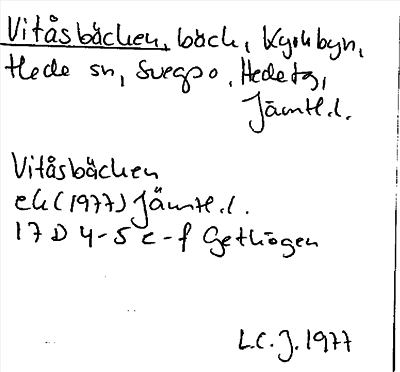 Vitåsbäcken, bäck, Kyrkbyn,
Hede sn, Svegs o. Hede tg,
Jämtl.l.
Vitåsbäcken
ek (1977) Jämtl.l.
17 D 4-5 e-f Gethögen
L.C.J. 1977